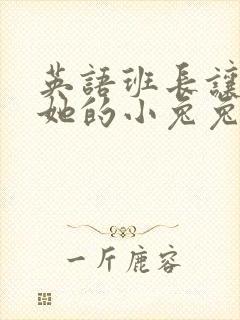 英語班長讓
她的小兔兔
一斤鹿容